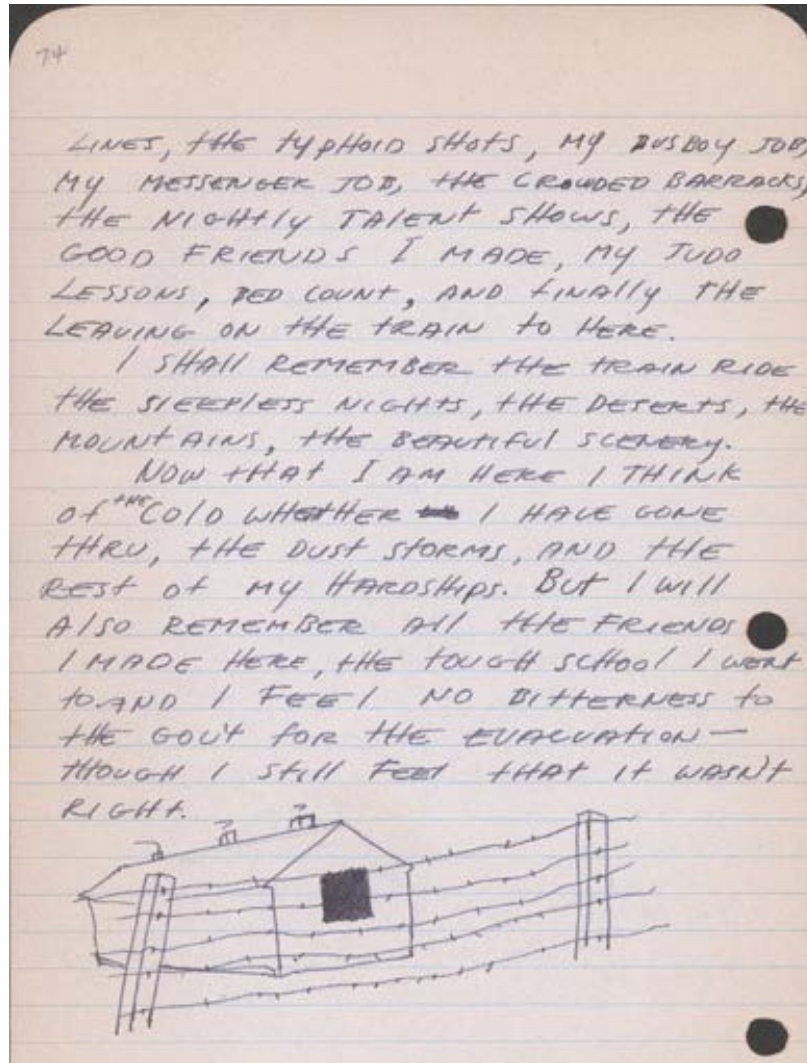 74
LINES, tHE tYPHOID SHOtS, MY BUSBOY JOB,
MY MESSENGER JOB, tHE CROWDED BARRACKS,
tHE NIGHtly TALENt SHOWS, tHE
GOOD FRIENDS I MADE, MY JUDO
LESSONS, BED COUNt, AND fINAlly THE
LEAVING ON tHE tRAIN to HERE.
I SHAll REMEMBER tHE tRAIN RIDE
tHE SlEEPLESS NIGHtS, tHE DESERtS, tHE
MOUNtAINS, tHE BEAUtIFUl SCENERY.
NOW tHAt I AM HERE I THINK
Of tHE COlD WHETHER I HAVE GONE
tHRU, tHE DUSt StORMS, AND tHE
RESt Of MY HARDSHIPS. BUt I WIll
AlSO REMEMBER All tHE FRIENDS
I MADE HERE, tHE tOUGH SCHOOl I WENt
to AND I FEEl NO BIttERNESS to
tHE GOV't fOR tHE EVACUATION —
tHOUGH I StIll FEEl tHAt It WASN't
RIGHt.